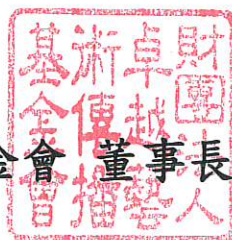 財團法人
卓越藝
術傳播
基金會
金會 董事長